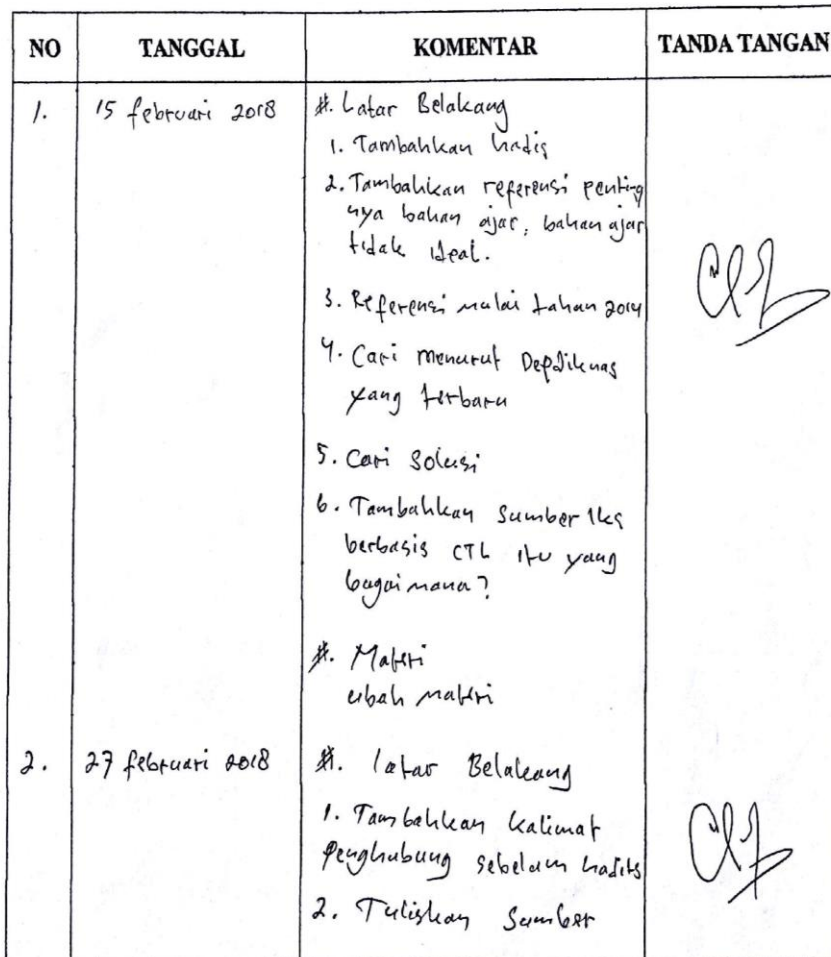 NO TANGGAL KOMENTAR TANDA TANGAN
1. 15 februari 2018 #. Latar Belakang
1. Tambahkan hadis
2. Tambahkan referensi penting
nya bahan ajar, bahan ajar
tidak ideal.
3. Referensi mulai tahun 2014
4. Cari menurut Depdiknas
yang terbaru
5. Cari Solusi
6. Tambahkan Sumber lks
berbasis CTL itu yang
bagaimana?
#. Materi
ubah materi
2. 27 februari 2018 #. latar Belakang
1. Tambahkan kalimat
Penghubung sebelum hadits
2. Tuliskan Sumber